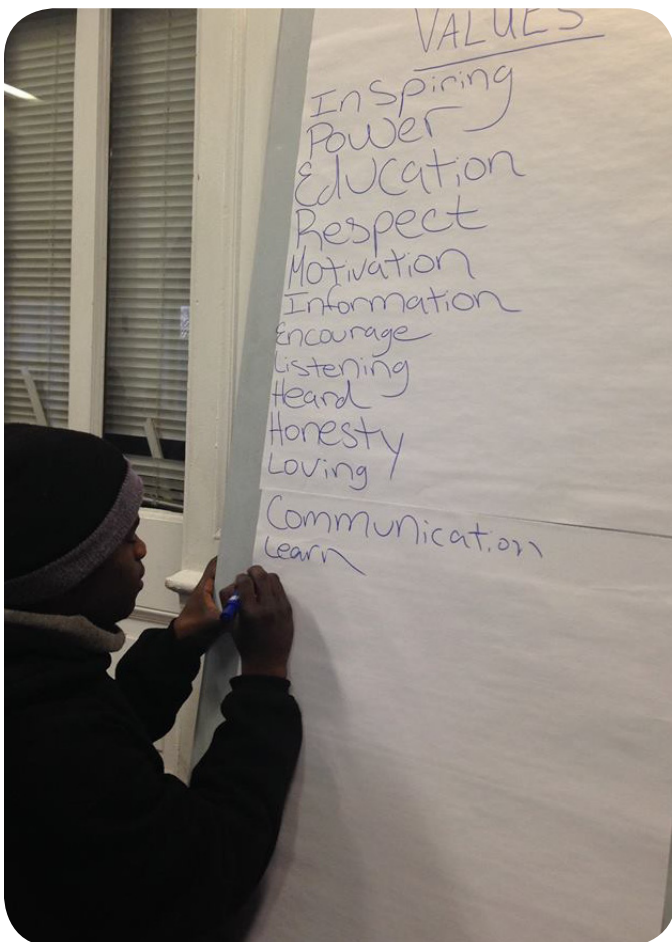 VALUES
Inspiring
Power
Education
Respect
Motivation
Information
Encourage
Listening
Heard
Honesty
Loving
Communication
Learn